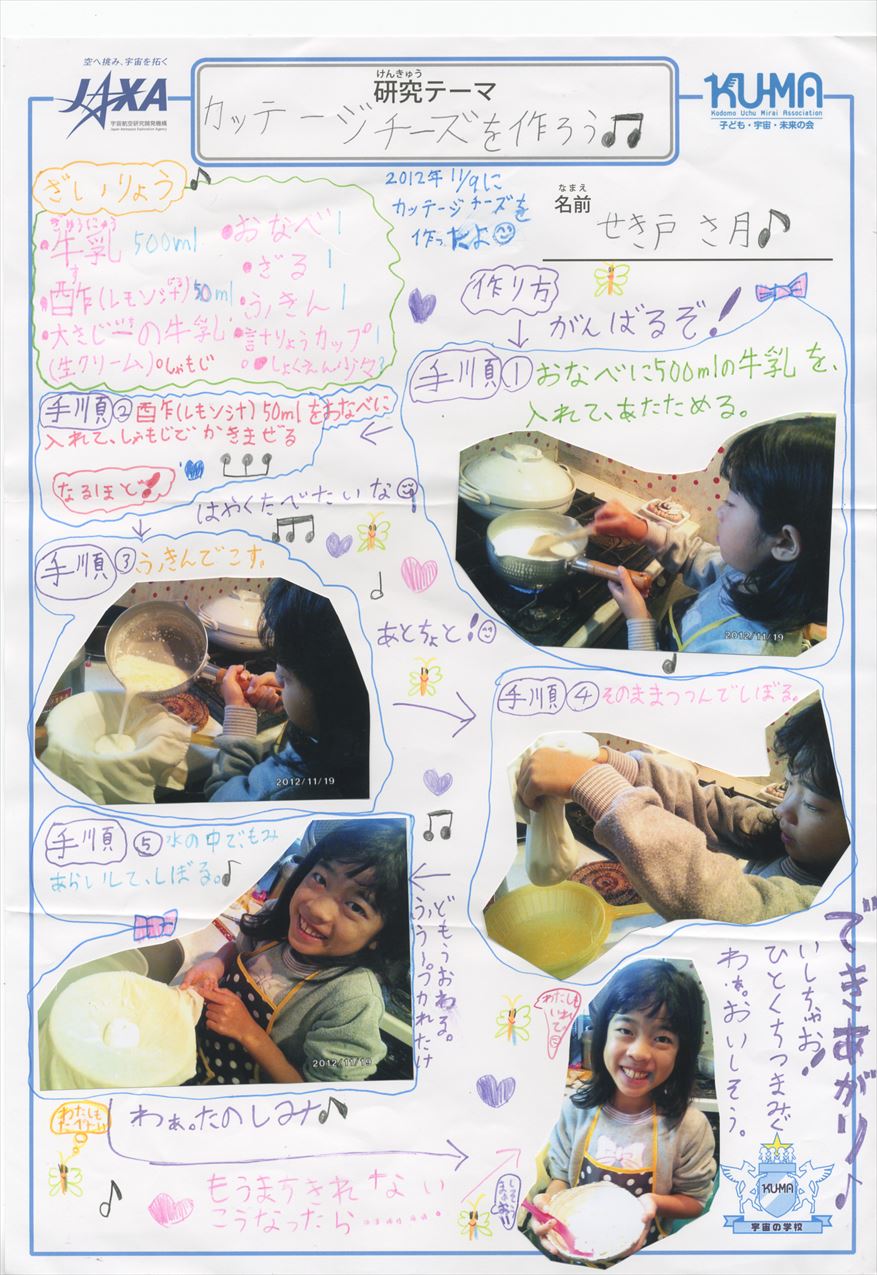 空へ挑み、宇宙を拓く
JAXA
宇宙航空研究開発機構
Japan Aerospace Exploration Agency
けんきゅう
研究テーマ
カッテージチーズを作ろう
KU-MA
Kodomo Uchu Mirai Association
子ども・宇宙・未来の会
ざいりょう
ぎゅうにゅう
・牛乳 500ml
す
・酢(レモン汁)50ml
・大さじ一の牛乳
(生クリーム)
・しゃもじ
・おなべ 1
・ざる 1
・ふきん 1
・計りょうカップ 1
・しょくえん少々
2012年 11/9に
カッテージチーズを
作っただよ
なまえ
名前
せき戸 さ月
作り方
がんばるぞ!
手順① おなべに500mlの牛乳を、
入れて、あたためる。
2012/11/19
手順② 酢(レモン汁)50mlをおなべに
入れて、しゃもじでかきまぜる
なるほど!
はやくたべたいな
手順③ ふきんでこす。
2012/11/19
あとちょと!
手順④ そのままつつんでしぼる。
手順⑤ 水の中でもみ
あらいして、しぼる。
2012/11/19
どもうおわる。
ふうう〜。つかれたけ
できあがり
わぁ。おいしそう。
ひとくちつまみぐ
いしちゃお!
わたしも
いれて
わたしも
わぁ。たのしみ
もうまちきれない
こうなったら………
KU-MA
宇宙の学校